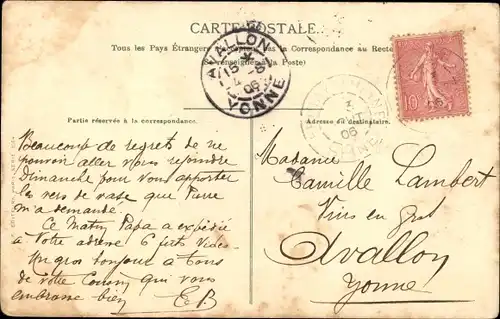 CARTE POSTALE
Tous les Pays Étrangers n'acceptent pas la Correspondance au Recto
(Se renseigner à la Poste)
AVALLON
YONNE
06
10
Partie réservée à la correspondance.
Adresse du destinataire.
Beaucoup de regrets de ne
pouvoir aller vous rejoindre
Dimanche pour vous apporter
les vers de vase que Pierre
m'a demandé.
Ce matin Papa a expédié
à votre adresse 6 futs vides
Un gros bonjour à tous
de votre Cousin qui vous
embrasse bien E.B
Madame
Camille Lambert
Vins en gros
Avallon
Yonne